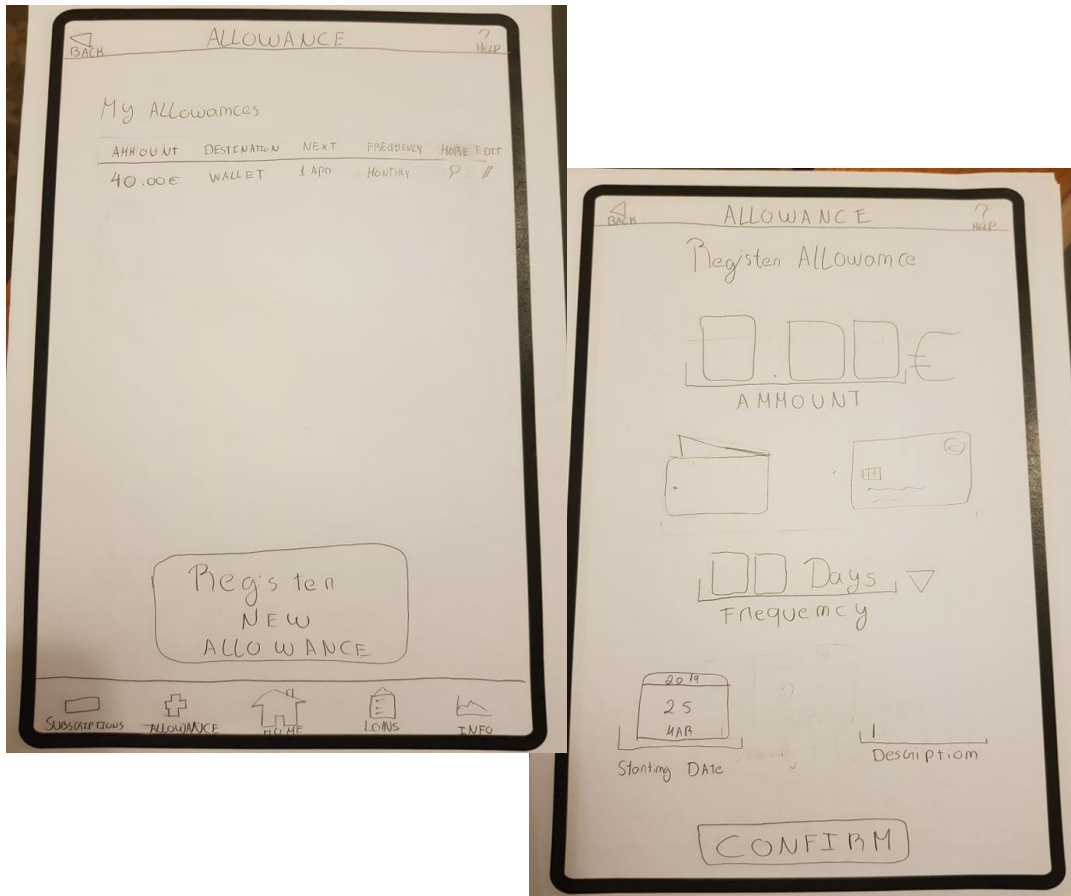 ALLOWANCE
BACK
?
HELP
My Allowances
AMMOUNT DESTINATION NEXT FREQUENCY MORE EDIT
40.00€ WALLET 1 APR MONTHLY
Register
NEW
ALLOWANCE
SUBSCRIPTIONS ALLOWANCE HOME LOANS INFO
ALLOWANCE
BACK
?
HELP
Register Allowance
0.00€
AMMOUNT
€
00 Days
Frequency
2019
25
MAR
Starting DATE
Description
CONFIRM